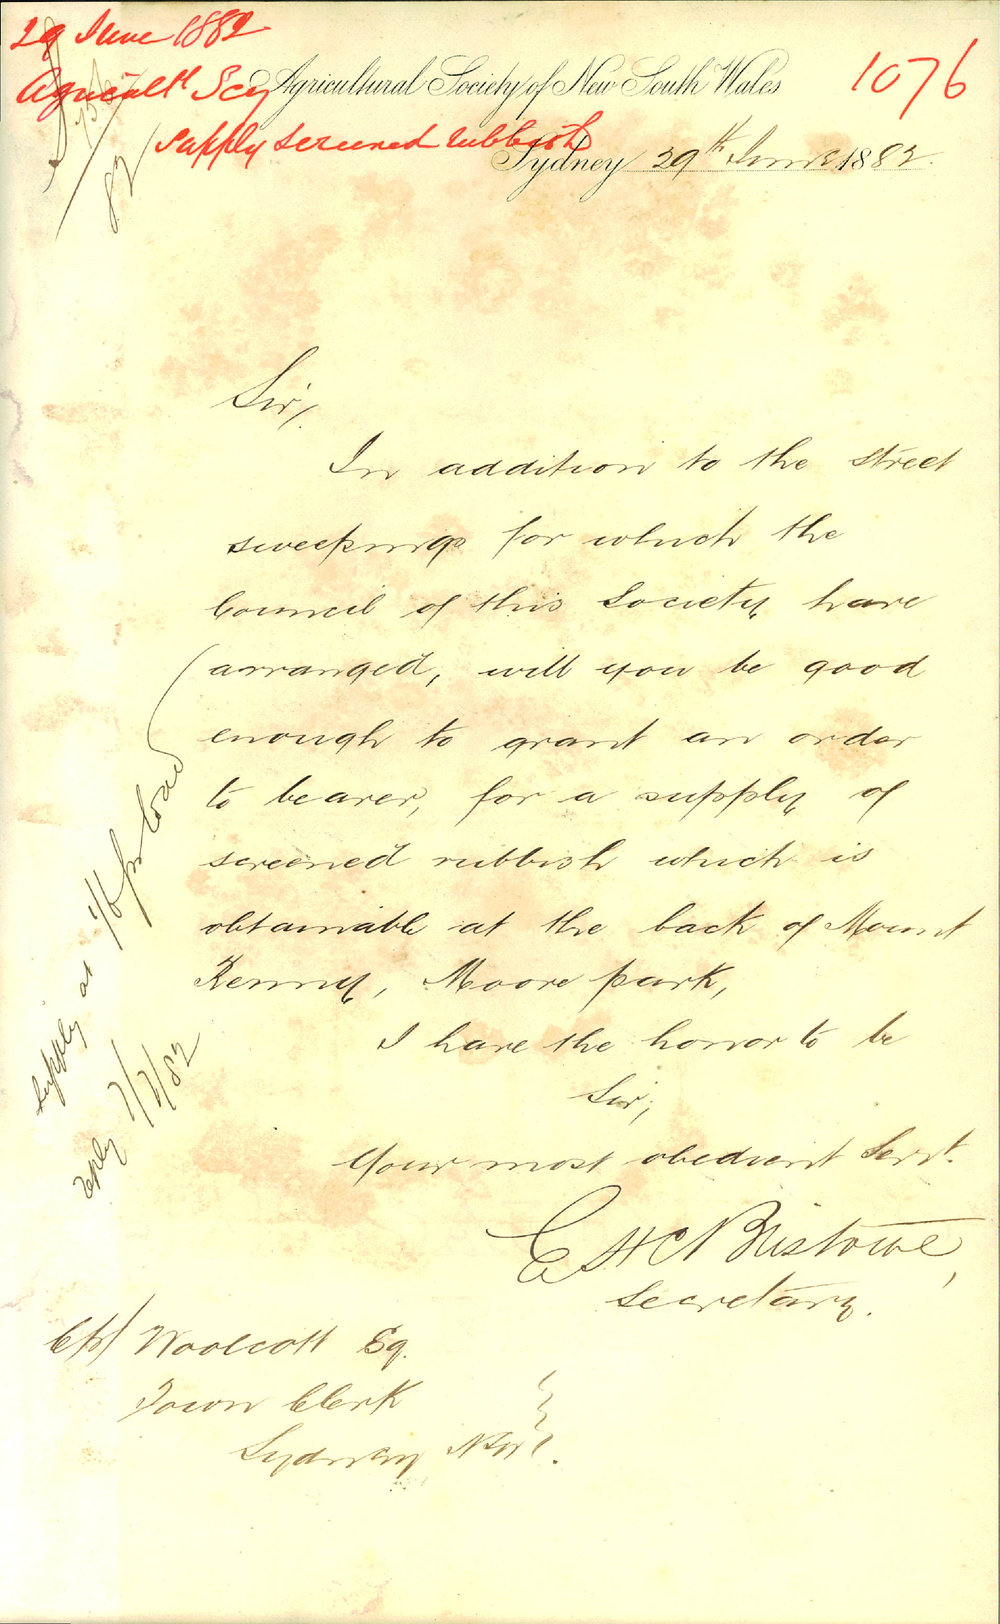 29 June 1882
Agricultl Scy
1076
supply screened rubbish
Agricultural Society of New South Wales
82
Sydney 29th June 1882.
Sir,
In addition to the street
sweepings for which the
Council of this Society have
arranged, will you be good
enough to grant an order
to bearer, for a supply of
screened rubbish which is
obtainable at the back of Mount
Rennie, Moore park,
I have the honor to be
Sir,
Your most obedient Servt.
E H C Bristowe,
Secretary.
Woolcott Esq.
Town Clerk
Sydney NSW.
supply at 1/6 pr load
reply 7/7/82